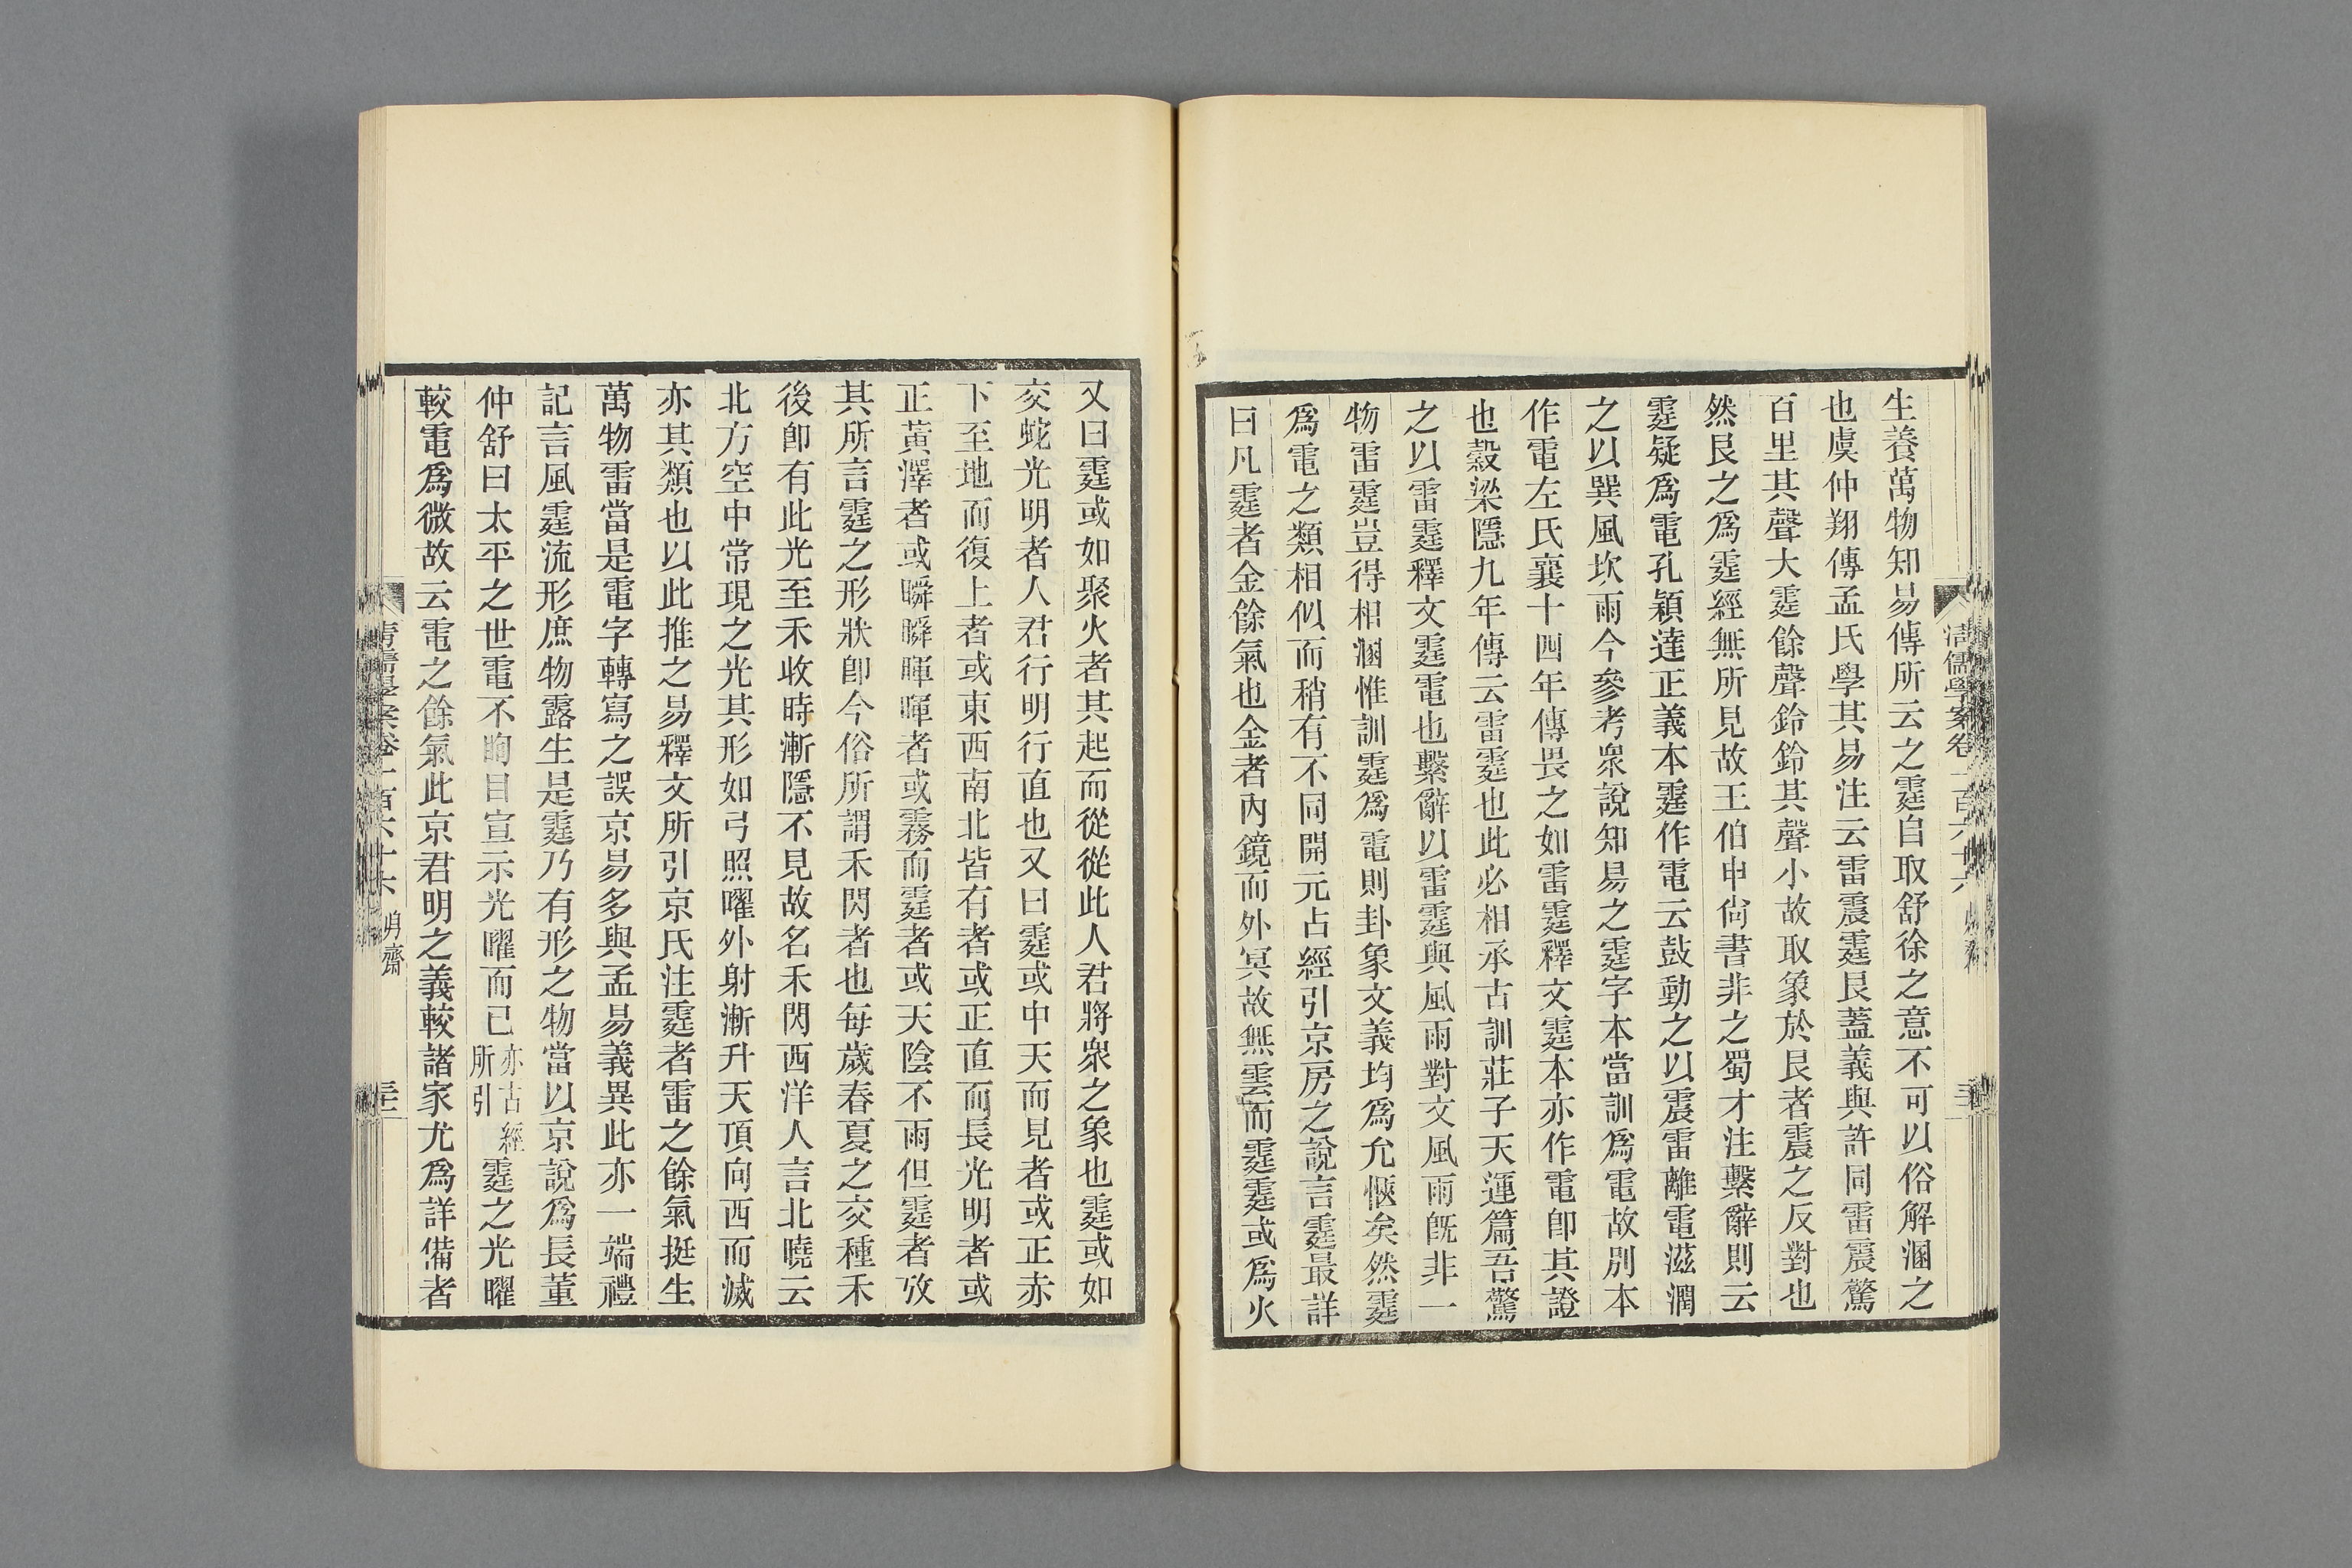 生養萬物知易傳所云之霆自取舒徐之意不可以俗解溷之
也虞仲翔傳孟氏學其易注云雷震霆艮蓋義與許同雷震驚
百里其聲大霆餘聲鈴鈴其聲小故取象於艮者震之反對也
然艮之爲霆經無所見故王伯申尙書非之蜀才注繫辭則云
霆疑爲電孔穎達正義本霆作電云鼓動之以震雷離電滋潤
之以巽風坎雨今參考衆說知易之霆字本當訓爲電故別本
作電左氏襄十四年傳畏之如雷霆釋文霆本亦作電卽其證
也穀梁隱九年傳云雷霆也此必相承古訓莊子天運篇吾驚
之以雷霆釋文霆電也繫辭以雷霆與風雨對文風雨旣非一
物雷霆豈得相溷惟訓霆爲電則卦象文義均爲允愜矣然霆
爲電之類相似而稍有不同開元占經引京房之說言霆最詳
曰凡霆者金餘氣也金者內鏡而外冥故無雲而霆霆或爲火
又曰霆或如聚火者其起而從從此人君將衆之象也霆或如
交蛇光明者人君行明行直也又曰霆或中天而見者或正赤
下至地而復上者或東西南北皆有者或正直而長光明者或
正黃澤者或瞬瞬暉暉者或霧而霆者或天陰不雨但霆者攷
其所言霆之形狀卽今俗所謂禾閃者也每歲春夏之交種禾
後卽有此光至禾收時漸隱不見故名禾閃西洋人言北曉云
北方空中常現之光其形如弓照曜外射漸升天頂向西而滅
亦其類也以此推之易釋文所引京氏注霆者雷之餘氣挺生
萬物雷當是電字轉寫之誤京易多與孟易義異此亦一端禮
記言風霆流形庶物露生是霆乃有形之物當以京說爲長董
仲舒曰太平之世電不眴目宣示光曜而已亦古經所引霆之光曜
較電爲微故云電之餘氣此京君明之義較諸家尤爲詳備者
清儒學案卷一百六十六